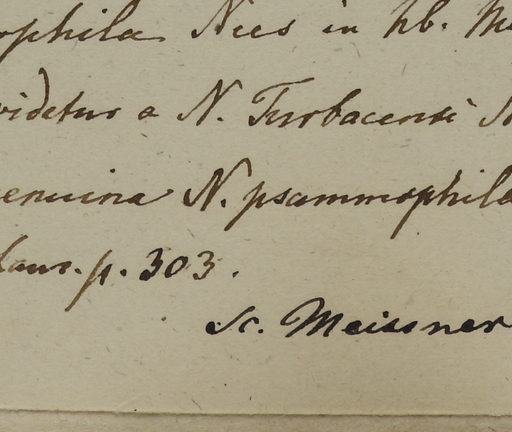 ophila Nees in hb. M
videtur a N. Turbacensi
enuina N. psammophila
Laur. p. 303.
Sc. Meissner